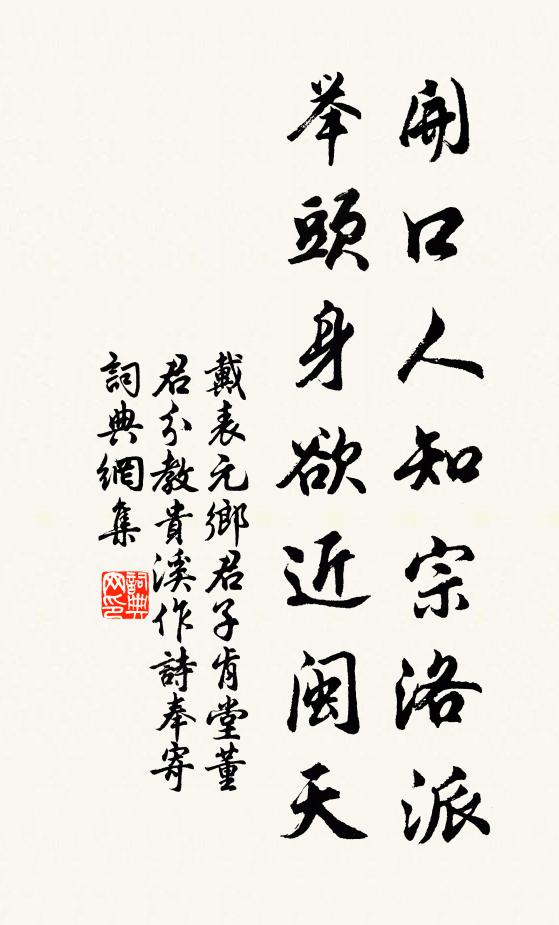 開口人知宗洛派
举頭身欲近閩天
戴表元鄉君子肯堂董
君分教貴溪作詩奉寄
詞典網集
詞典网印